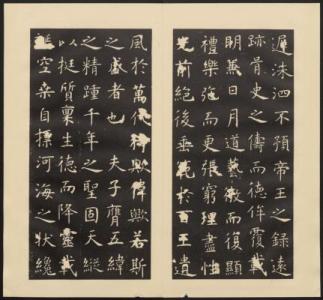 遲洙泗不預帝王之錄遠
跡胥史之儔而德侔覆載
明兼日月道藝微而復顯
禮樂弛而更張窮理盡性
光前絕後垂範於百王遺
風於萬代猗歟偉歟若斯
之盛者也 夫子膺五緯
之精踵千年之聖固天縱
以挺質稟生德而降靈載
誕空桑自標河海之狀纔